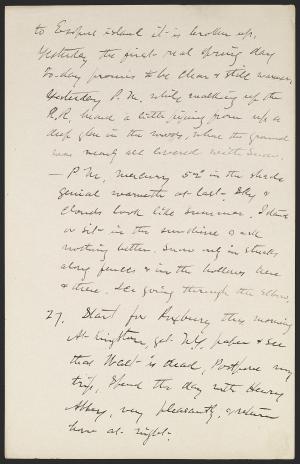 to Esopus island it is broken up.
Yesterday the first real spring day
To-day promises to be clear & still warmer.
Yesterday P.M. while walking up the
R.R. heard a little piping from up a
deep glen in the woods, where the ground
was nearly all covered with snow.
— P.M. mercury 52 in the shade
genial warmth at last. Sky &
clouds look like summer. I stand
or sit in the sunshine & ask
nothing better. Snow only in streaks
along fences & in the hollows here
& there. Ice going through the Elbow.
27. Start for Roxbury this morning
At Kingston, get N.Y. paper & see
that Walt is dead, Postpone my
trip, Spend the day with Henry
Abbey, very pleasantly, & return
home at night.